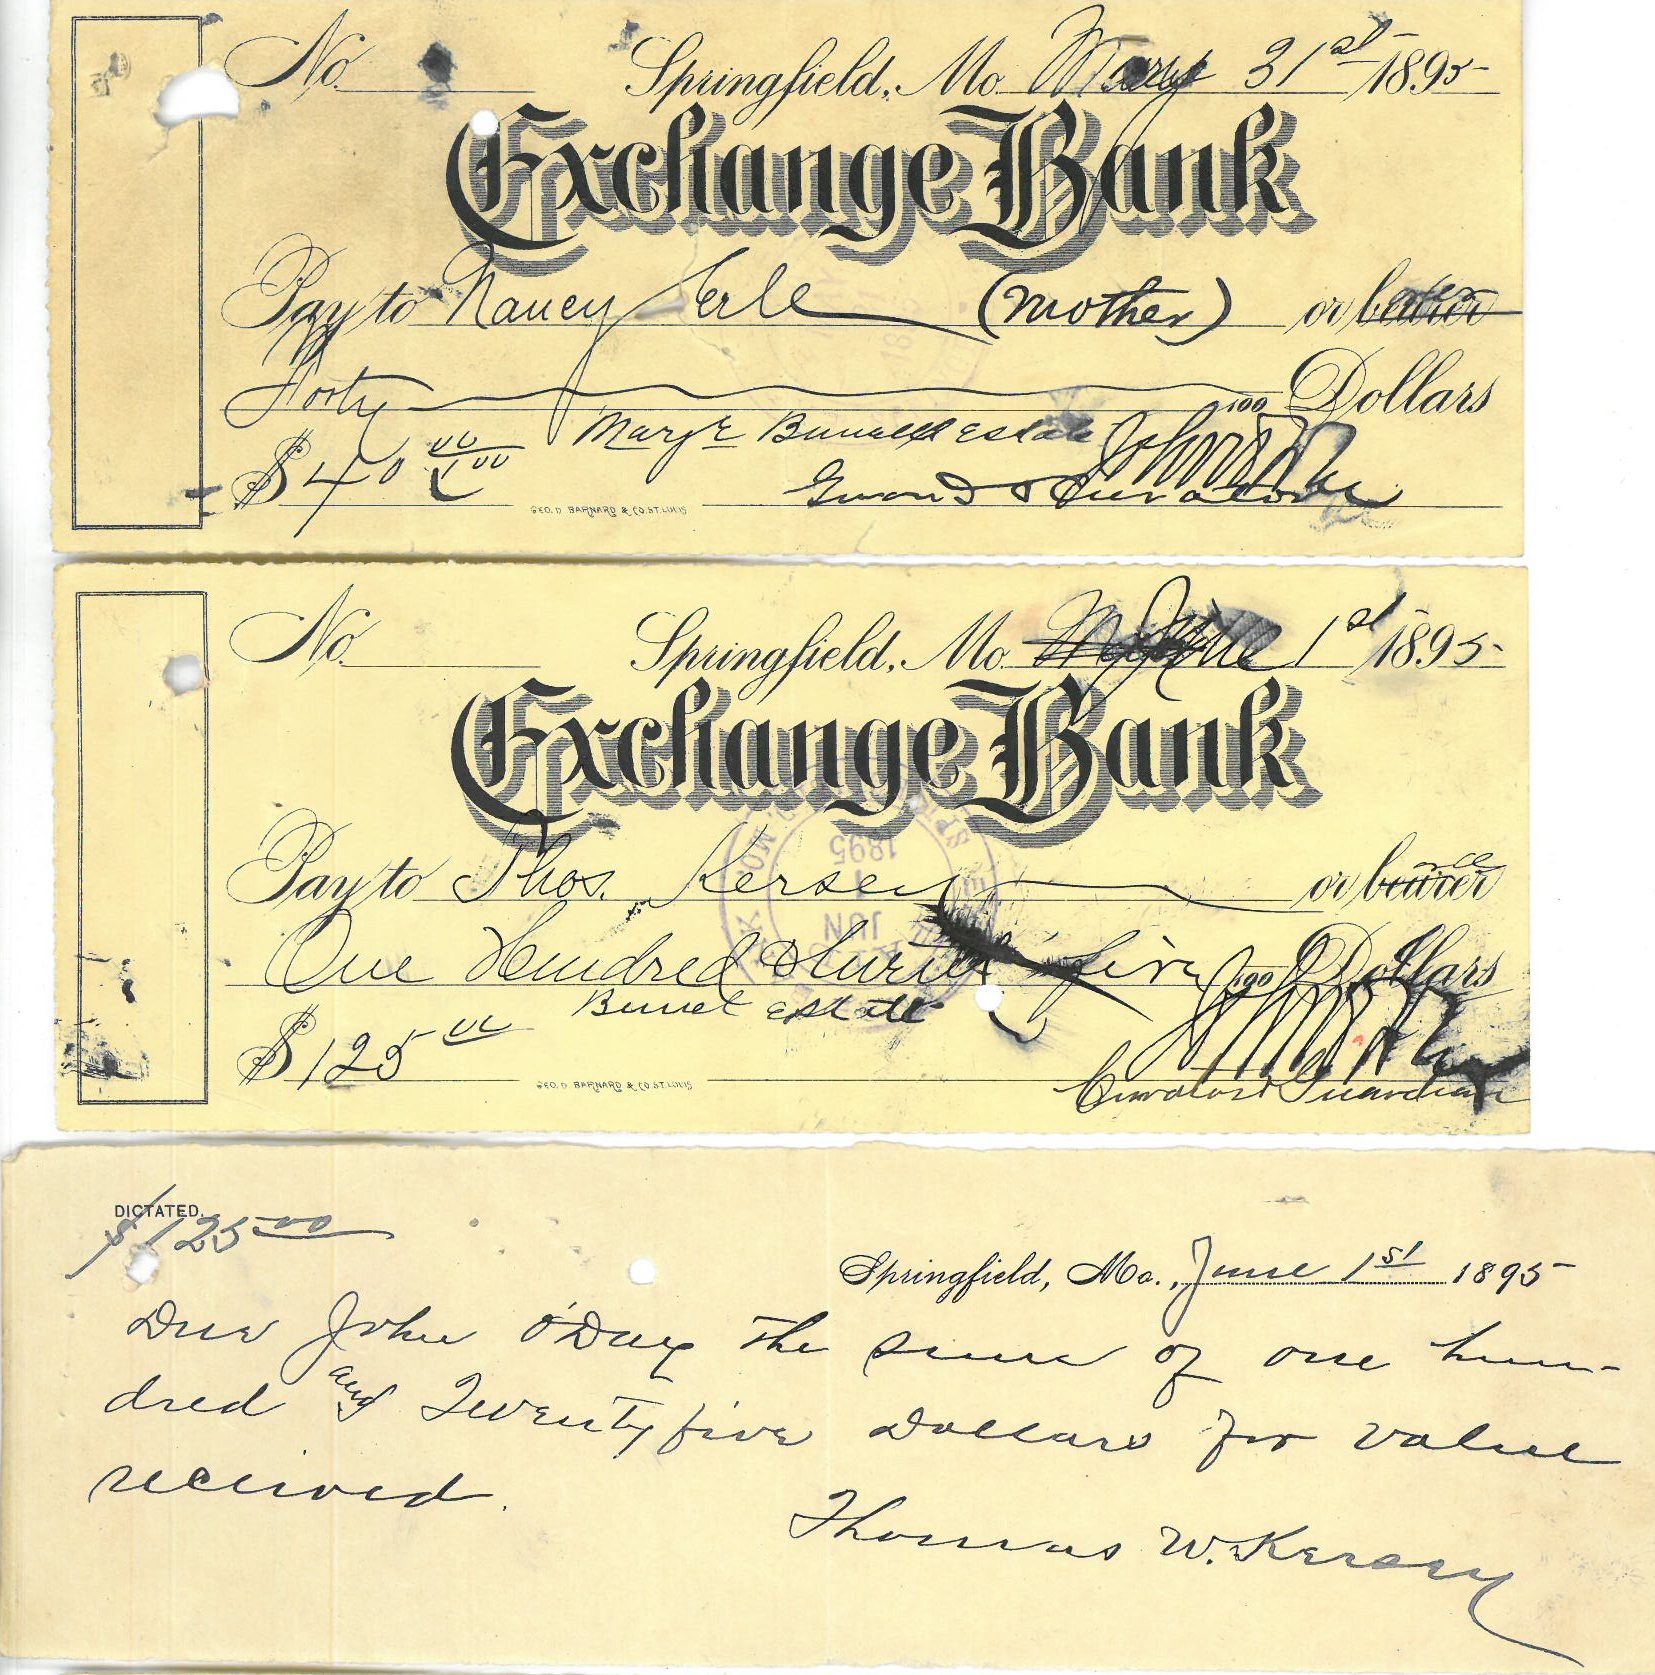 No.
Springfield, Mo. May 31st 1895
Exchange Bank
Pay to Nancy Erle (Mother) or bearer
Forty /100 Dollars
Mary E Burrell Estate
$40 00/100
Guard & Curator
GEO. D BARNARD & CO. ST. LOUIS
No.
Springfield, Mo. June 1st 1895
Exchange Bank
Pay to Thos. Kersey or bearer
JUN 1 1895
One Hundred & five /100 Dollars
Estate
$125 00
Curator & Guardian
GEO. D BARNARD & CO. ST. LOUIS
DICTATED.
$125 00
Springfield, Mo., June 1st 1895
Due John O'Day the sum of one hun-
dred and Twenty five Dollars for value
received.
Thomas W. Kersey